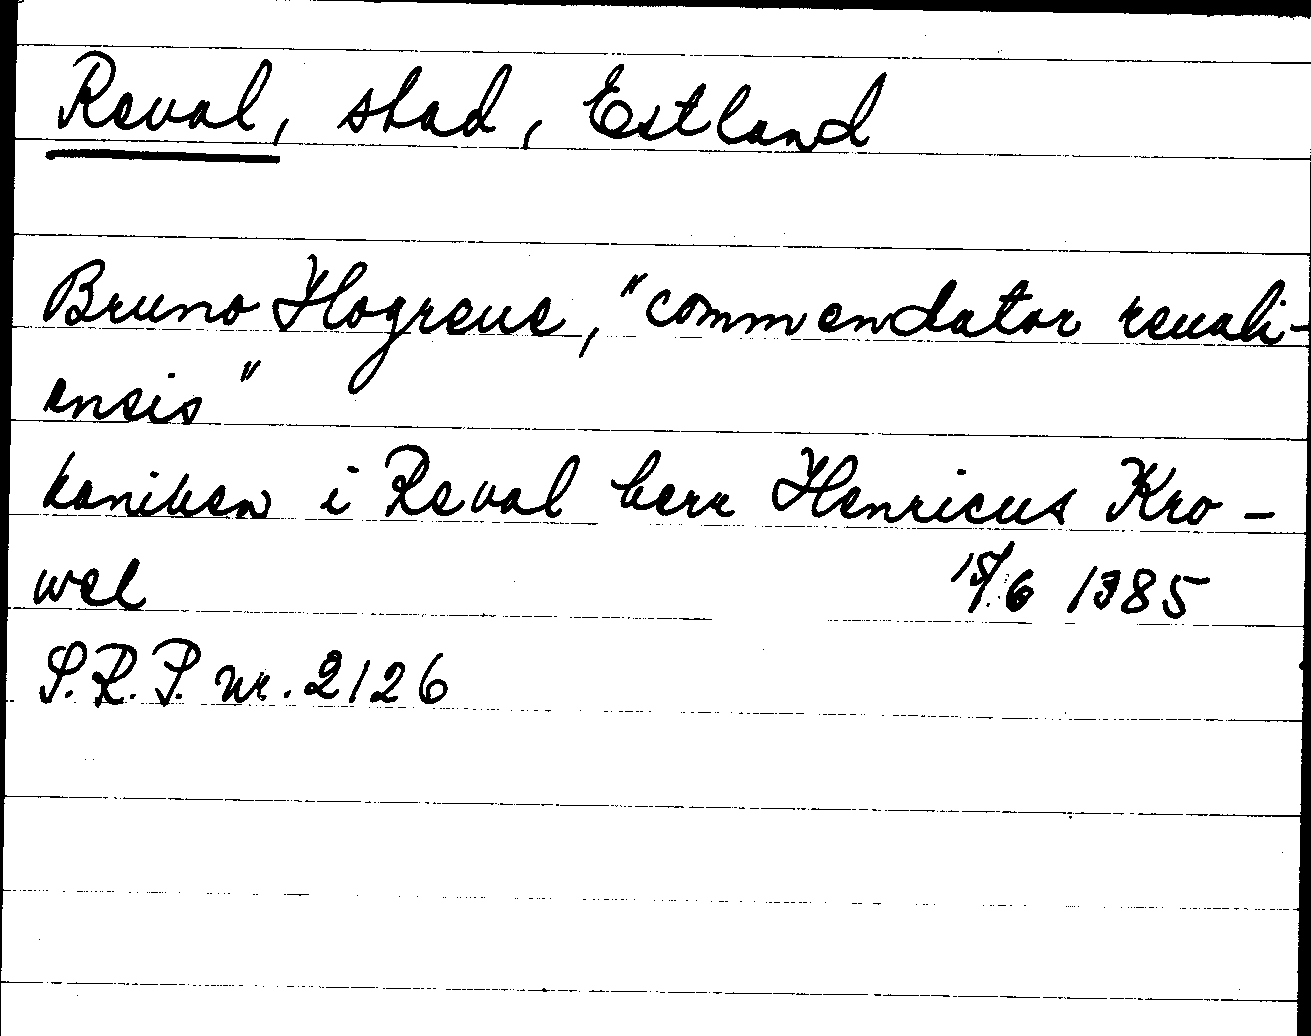 Reval, stad, Estland
Bruno Hogreue, "commendator reuali-
ensis"
kaniken i Reval herr Henricus Kro-
wel 15/6 1385
S.R.P. nr. 2126